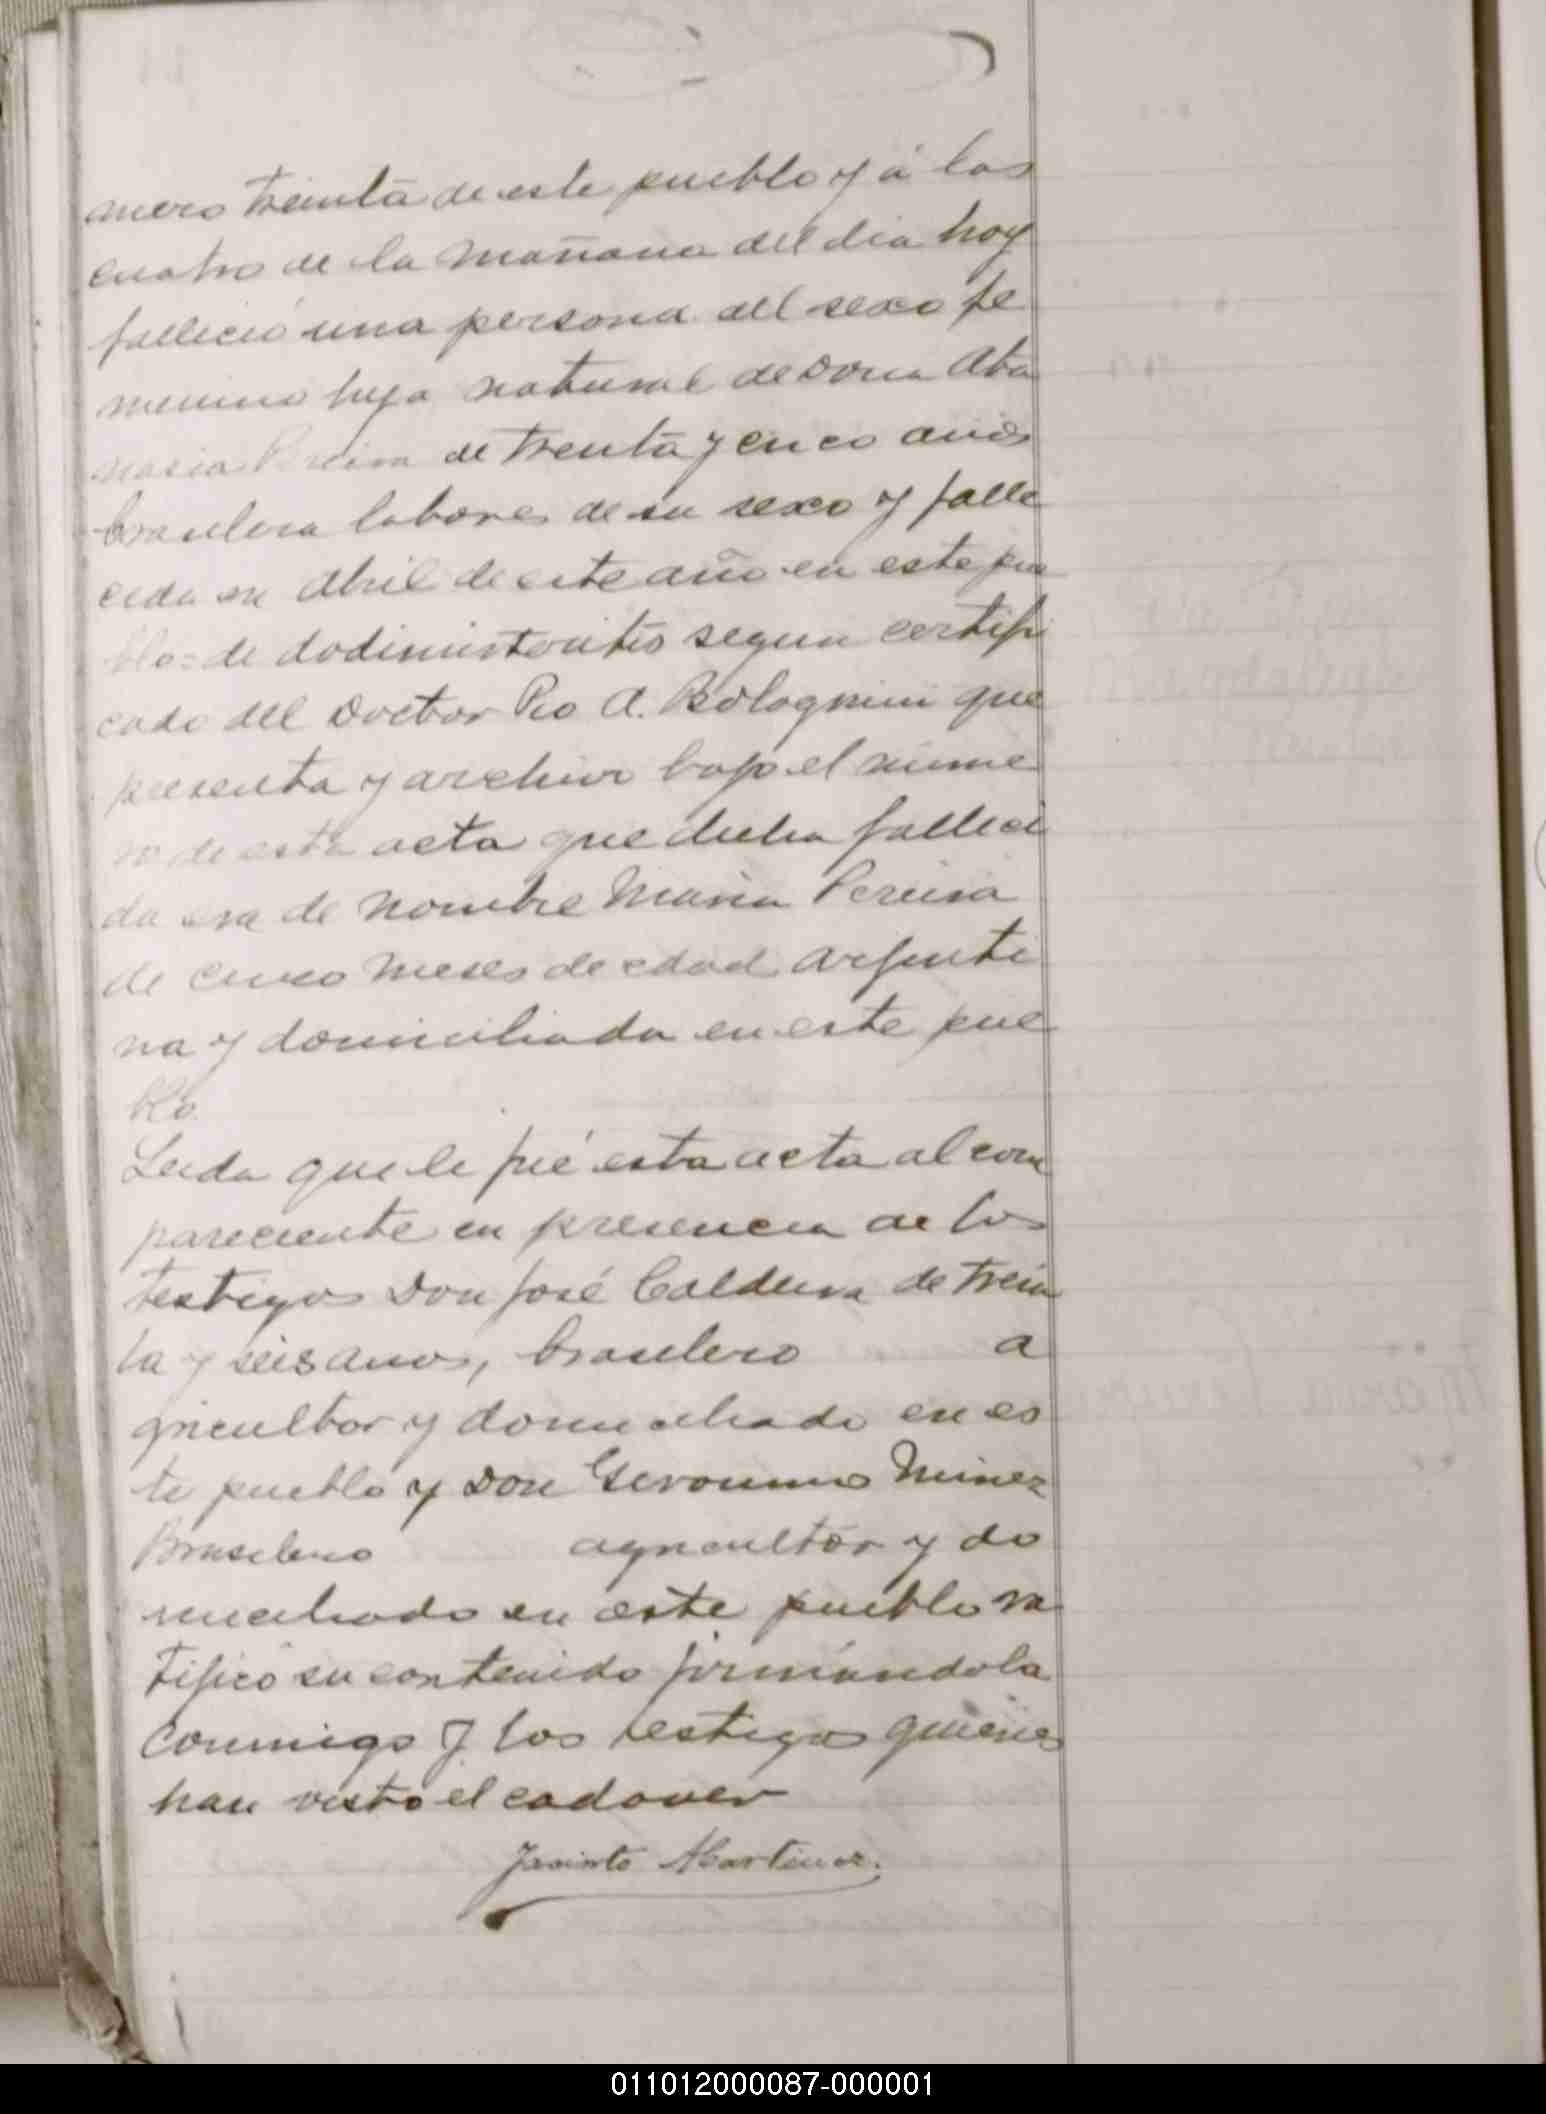 mero treinta de este pueblo y á las
cuatro de la mañana del dia hoy
fallecio una persona del sexo fe
menino hija natural de Doña Ata
nacia Pereira de treinta y cinco años
brasilera labores de su sexo y falle
cida en Abril de este año en este pue
blo = de segun certifi
cado del Doctor Pio A. Bolognini que
presenta y archivo bajo el nume
ro de esta acta que dicha falleci
da era de nombre Maria Pereira
de cinco meses de edad argenti
na y domiciliada en este pue
blo.
Leida que le fué esta acta al com
pareciente en presencia de los
testigos Don José Caldeira de trein
ta y seis años, brasilero a
gricultor y domiciliado en es
te pueblo y Don Geronimo Nunez
Brasilero agricultor y do
miciliado en este pueblo ra
tificó su contenido firmándola
conmigo y los testigos quienes
han visto el cadaver
Jacinto Martinez.
011012000087-000001